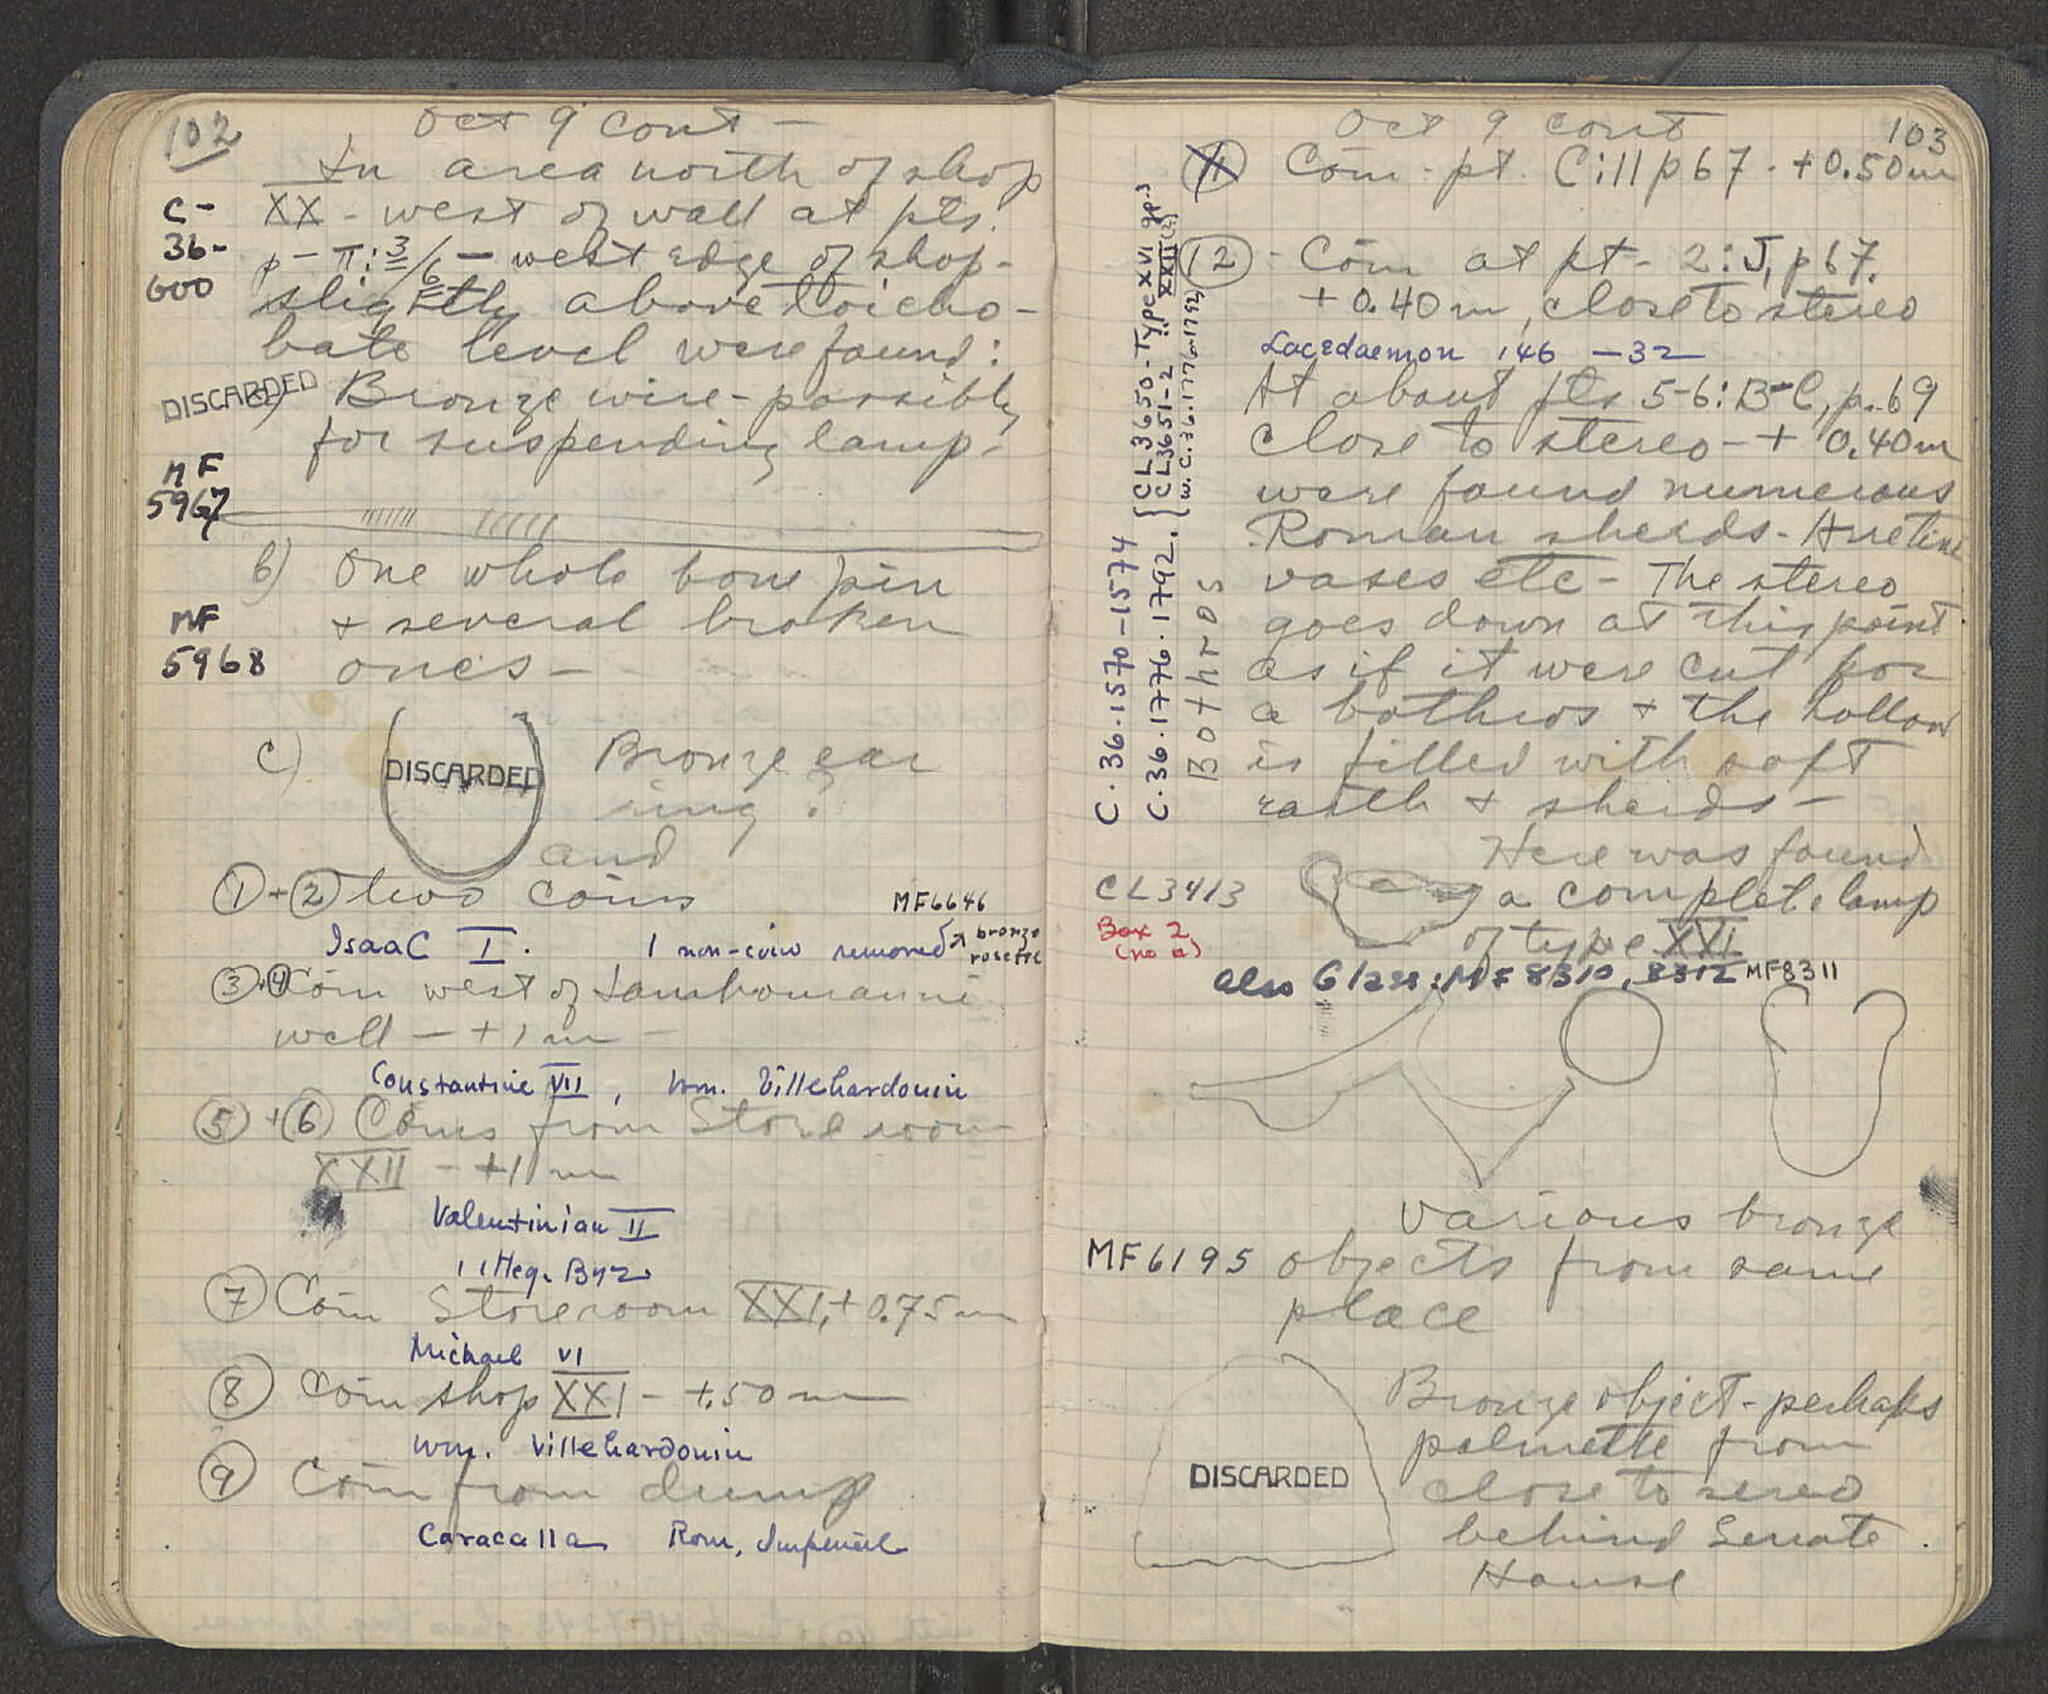 102
Oct 9 cont -
In area north of shop
C-
XX - west of wall at pts.
36-
p - π: 3/6 - west edge of shop -
600
slightly above toicho-
bate level were found:
DISCARDED
a) Bronze wire - possibly
for suspending lamp.
MF
5967
b) One whole bone pin
MF
+ several broken
5968
ones -
c) DISCARDED Bronze ear
ring?
and
① + ② two coins
MF6646
Isaac I. 1 non-coin removed
bronze
rosette
③ + ④ Coin west of
well - +1 m -
Constantine VII, Wm. Villehardouin
⑤ + ⑥ Coins from Store room
XXII - +1 m
Valentinian II
Byz
⑦ Coin Storeroom XXI, + 0.75 m
Michael VI
⑧ Coin shop XXI - +.50 m
Wm. Villehardouin
⑨ Coin from dump
Caracalla Rom. Imperial
Oct 9 cont
103
11 Coin - pt. C:11 p 67 - +0.50m
⑫ - Coin at pt - 2:J, p 67.
+0.40m, close to stereo
Lacedaemon 146 - 32
At about pts 5-6: B-C, p. 69
close to stereo - + 0.40m
were found numerous
Roman sherds - Arretine
vases etc - The stereo
goes down at this point
as if it were cut for
a bothros + the hollow
is filled with soft
earth + sherds -
C.36.1570-1574
C.36.1776.1792.
{CL3650 - Type XVI gp.3
CL3651-2 " XXII (2)
(w. C.36.1777 or 1792)
Bothros
Here was found
CL3413
a complete lamp
Box 2
(no a)
of type XXI
also Glass: MF 8310, 8312 MF8311
various bronze
MF6195 objects from same
place
Bronze object - perhaps
palmette from
DISCARDED
close to
behind Senate
House